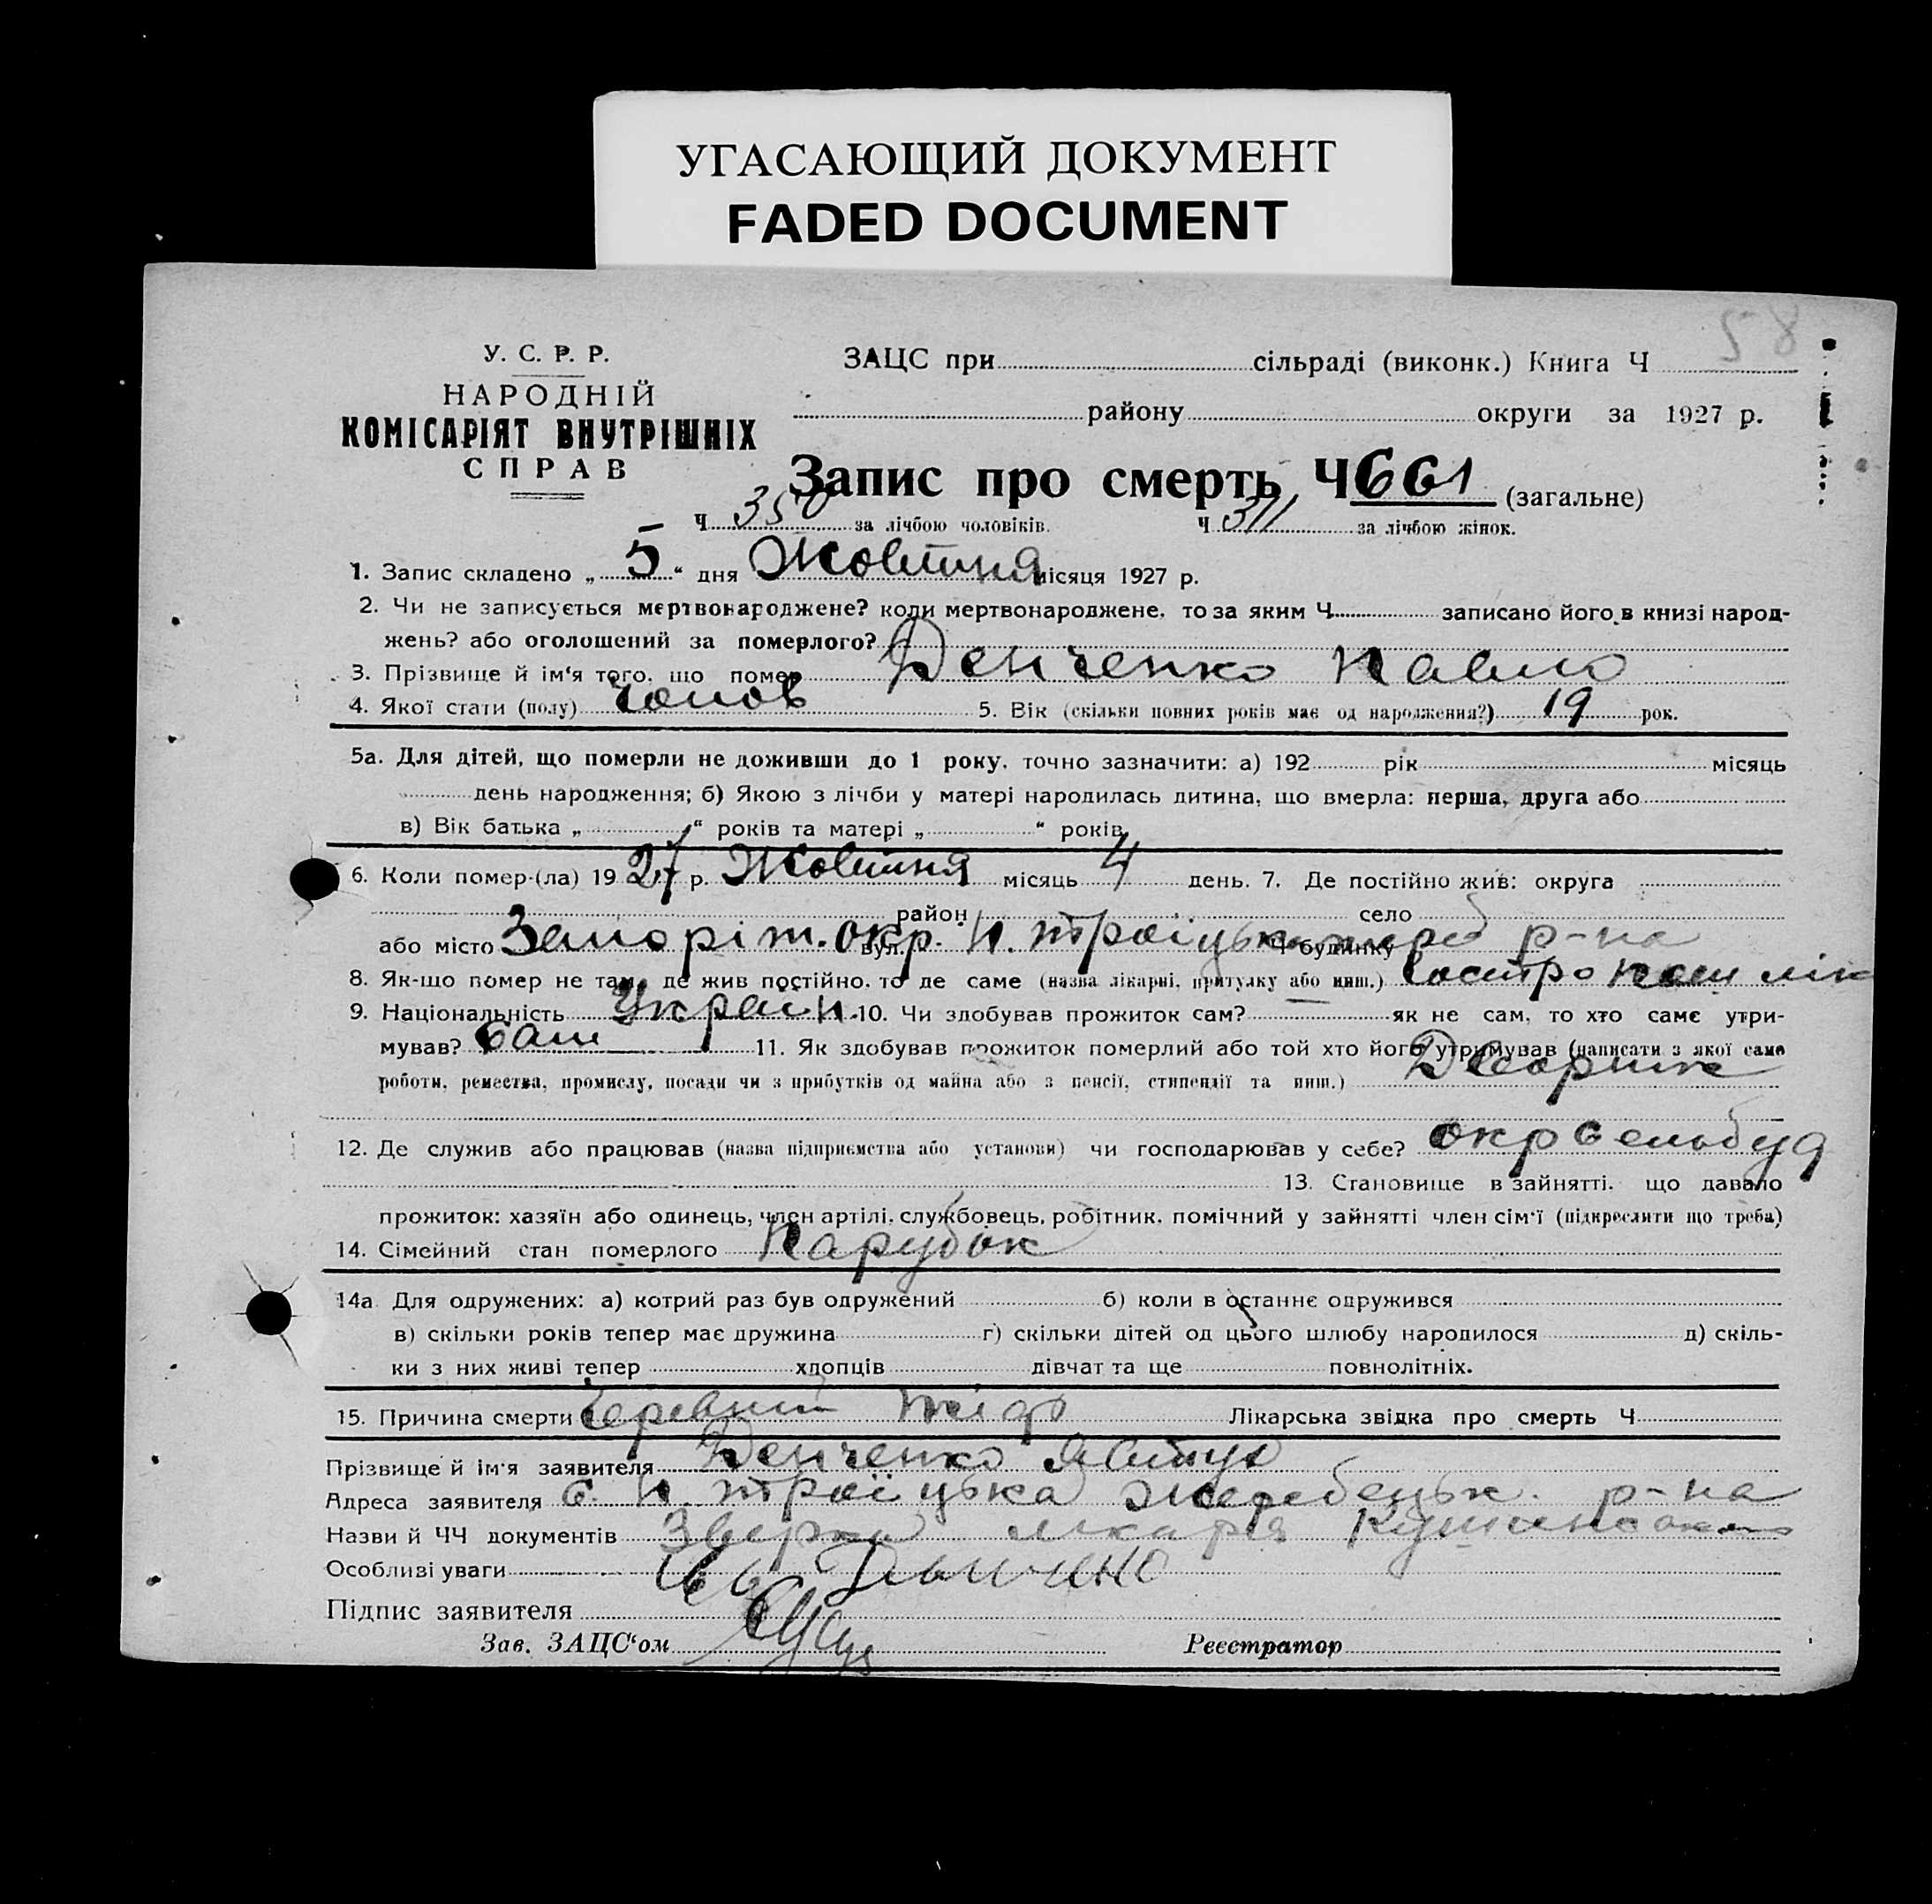 УГАСАЮЩИЙ ДОКУМЕНТ
FADED DOCUMENT
58
У. С. Р. Р.
НАРОДНІЙ
КОМІСАРІЯТ ВНУТРІШНІХ
СПРАВ
ЗАЦС при сільраді (виконк.) Книга Ч
району округи за 1927 р.
Запис про смерть Ч 661 (загальне)
Ч 350 за лічбою чоловіків. Ч 311 за лічбою жінок.
1. Запис складено „ 5 “ дня Жовтня місяця 1927 р.
2. Чи не записується мертвонароджене? коли мертвонароджене, то за яким Ч. записано його в книзі народ-
жень? або оголошений за померлого?
3. Прізвище й ім'я того, що помер Денченко Павло
4. Якої стати (полу) чолов 5. Вік (скільки повних років має од народження?) 19 рок.
5а. Для дітей, що померли не доживши до 1 року, точно зазначити: а) 192 рік місяць
день народження; б) Якою з лічби у матері народилась дитина, що вмерла: перша, друга або
в) Вік батька „ “ років та матері „ “ років
6. Коли помер-(ла) 1927 р. Жовтня місяць 4 день. 7. Де постійно жив: округа
район село
або місто Запоріж. окр. вул. Н. Троїцька Ч будинку р-на
8. Як-що помер не там, де жив постійно, то де саме (назва лікарні, притулку або инш.)
9. Національність Україн. 10. Чи здобував прожиток сам? як не сам, то хто саме утри-
мував? сам 11. Як здобував прожиток померлий або той хто його утримував (написати з якої саме
роботи, ремества, промислу, посади чи з прибутків од майна або з пенсії, стипендії та инш.) Двірник
12. Де служив або працював (назва підприємства або установи) чи господарював у себе? окрсельбуд
13. Становище в зайнятті, що давало
прожиток: хазяїн або одинець, член артілі, службовець, робітник, помічний у зайнятті член сім'ї (підкреслити що треба)
14. Сімейний стан померлого Парубок
14а Для одружених: а) котрий раз був одружений б) коли в останнє одружився
в) скільки років тепер має дружина г) скільки дітей од цього шлюбу народилося д) скіль-
ки з них живі тепер хлопців дівчат та ще повнолітніх.
15. Причина смерти Черевний тіф Лікарська звідка про смерть Ч
Прізвище й ім'я заявителя Денченко
Адреса заявителя с. Н. Троїцька Жеребецьк. р-на
Назви й ЧЧ документів лікаря
Особливі уваги
Підпис заявителя
Зав. ЗАЦС'ом Реєстратор